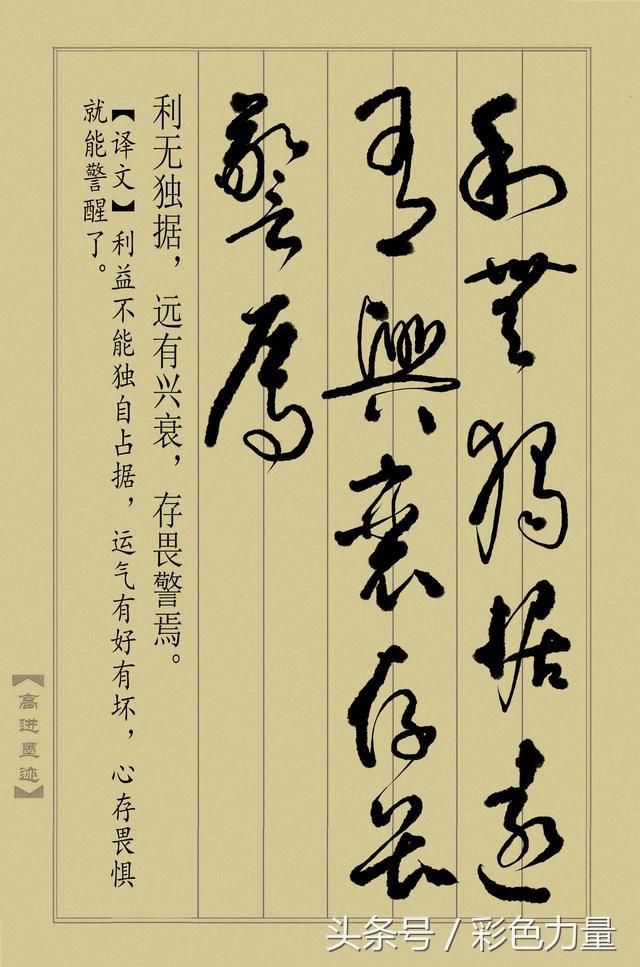 利無獨據遠
有興衰存畏
警焉
利无独据，远有兴衰，存畏警焉。
【译文】利益不能独自占据，运气有好有坏，心存畏惧
就能警醒了。
【高进墨迹】
头条号 / 彩色力量